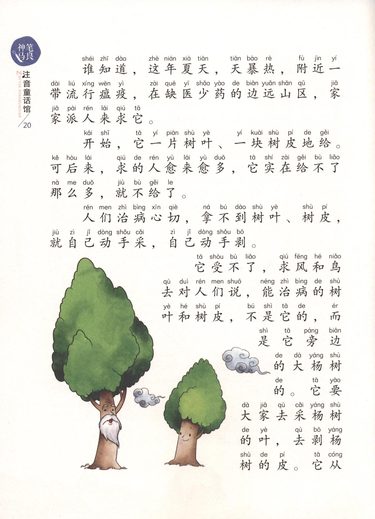 神笔马良
注音童话馆
20
shéi zhī dào zhè nián xià tiān tiān bào rè fù jìn yí
谁知道，这年夏天，天暴热，附近一
dài liú xíng wēn yì zài quē yī shǎo yào de biān yuǎn shān qū jiā
带流行瘟疫，在缺医少药的边远山区，家
jiā pài rén lái qiú tā
家派人来求它。
kāi shǐ tā yí piàn shù yè yí kuài shù pí de gěi
开始，它一片树叶、一块树皮地给。
kě hòu lái qiú de rén yù lái yù duō tā shí zài gěi bù liǎo
可后来，求的人愈来愈多，它实在给不了
nà me duō jiù bù gěi le
那么多，就不给了。
rén men zhì bìng xīn qiè ná bú dào shù yè shù pí
人们治病心切，拿不到树叶、树皮，
jiù zì jǐ dòng shǒu cǎi zì jǐ dòng shǒu bō
就自己动手采，自己动手剥。
tā shòu bù liǎo qiú fēng hé niǎo
它受不了，求风和鸟
qù duì rén men shuō néng zhì bìng de shù
去对人们说，能治病的树
yè hé shù pí bú shì tā de ér
叶和树皮，不是它的，而
shì tā páng biān
是它旁边
de dà yáng shù
的大杨树
de tā yào
的。它要
dà jiā qù cǎi yáng shù
大家去采杨树
de yè qù bō yáng
的叶，去剥杨
shù de pí tā cóng
树的皮。它从